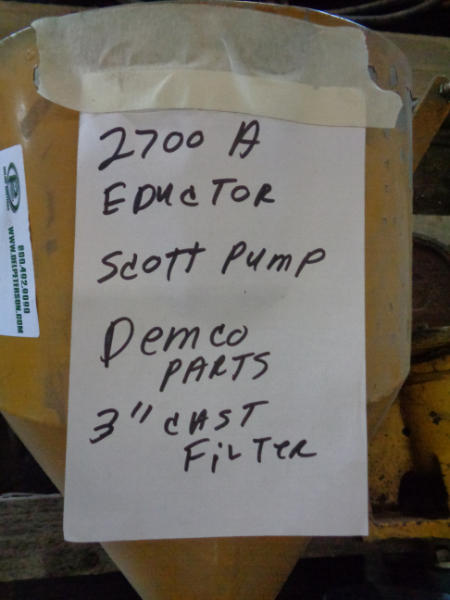 2700 A
EDUCTOR
Scott Pump
Demco
PARTS
3" CAST
FiLTER
800.492.9090
WWW.DELPETERSON.COM